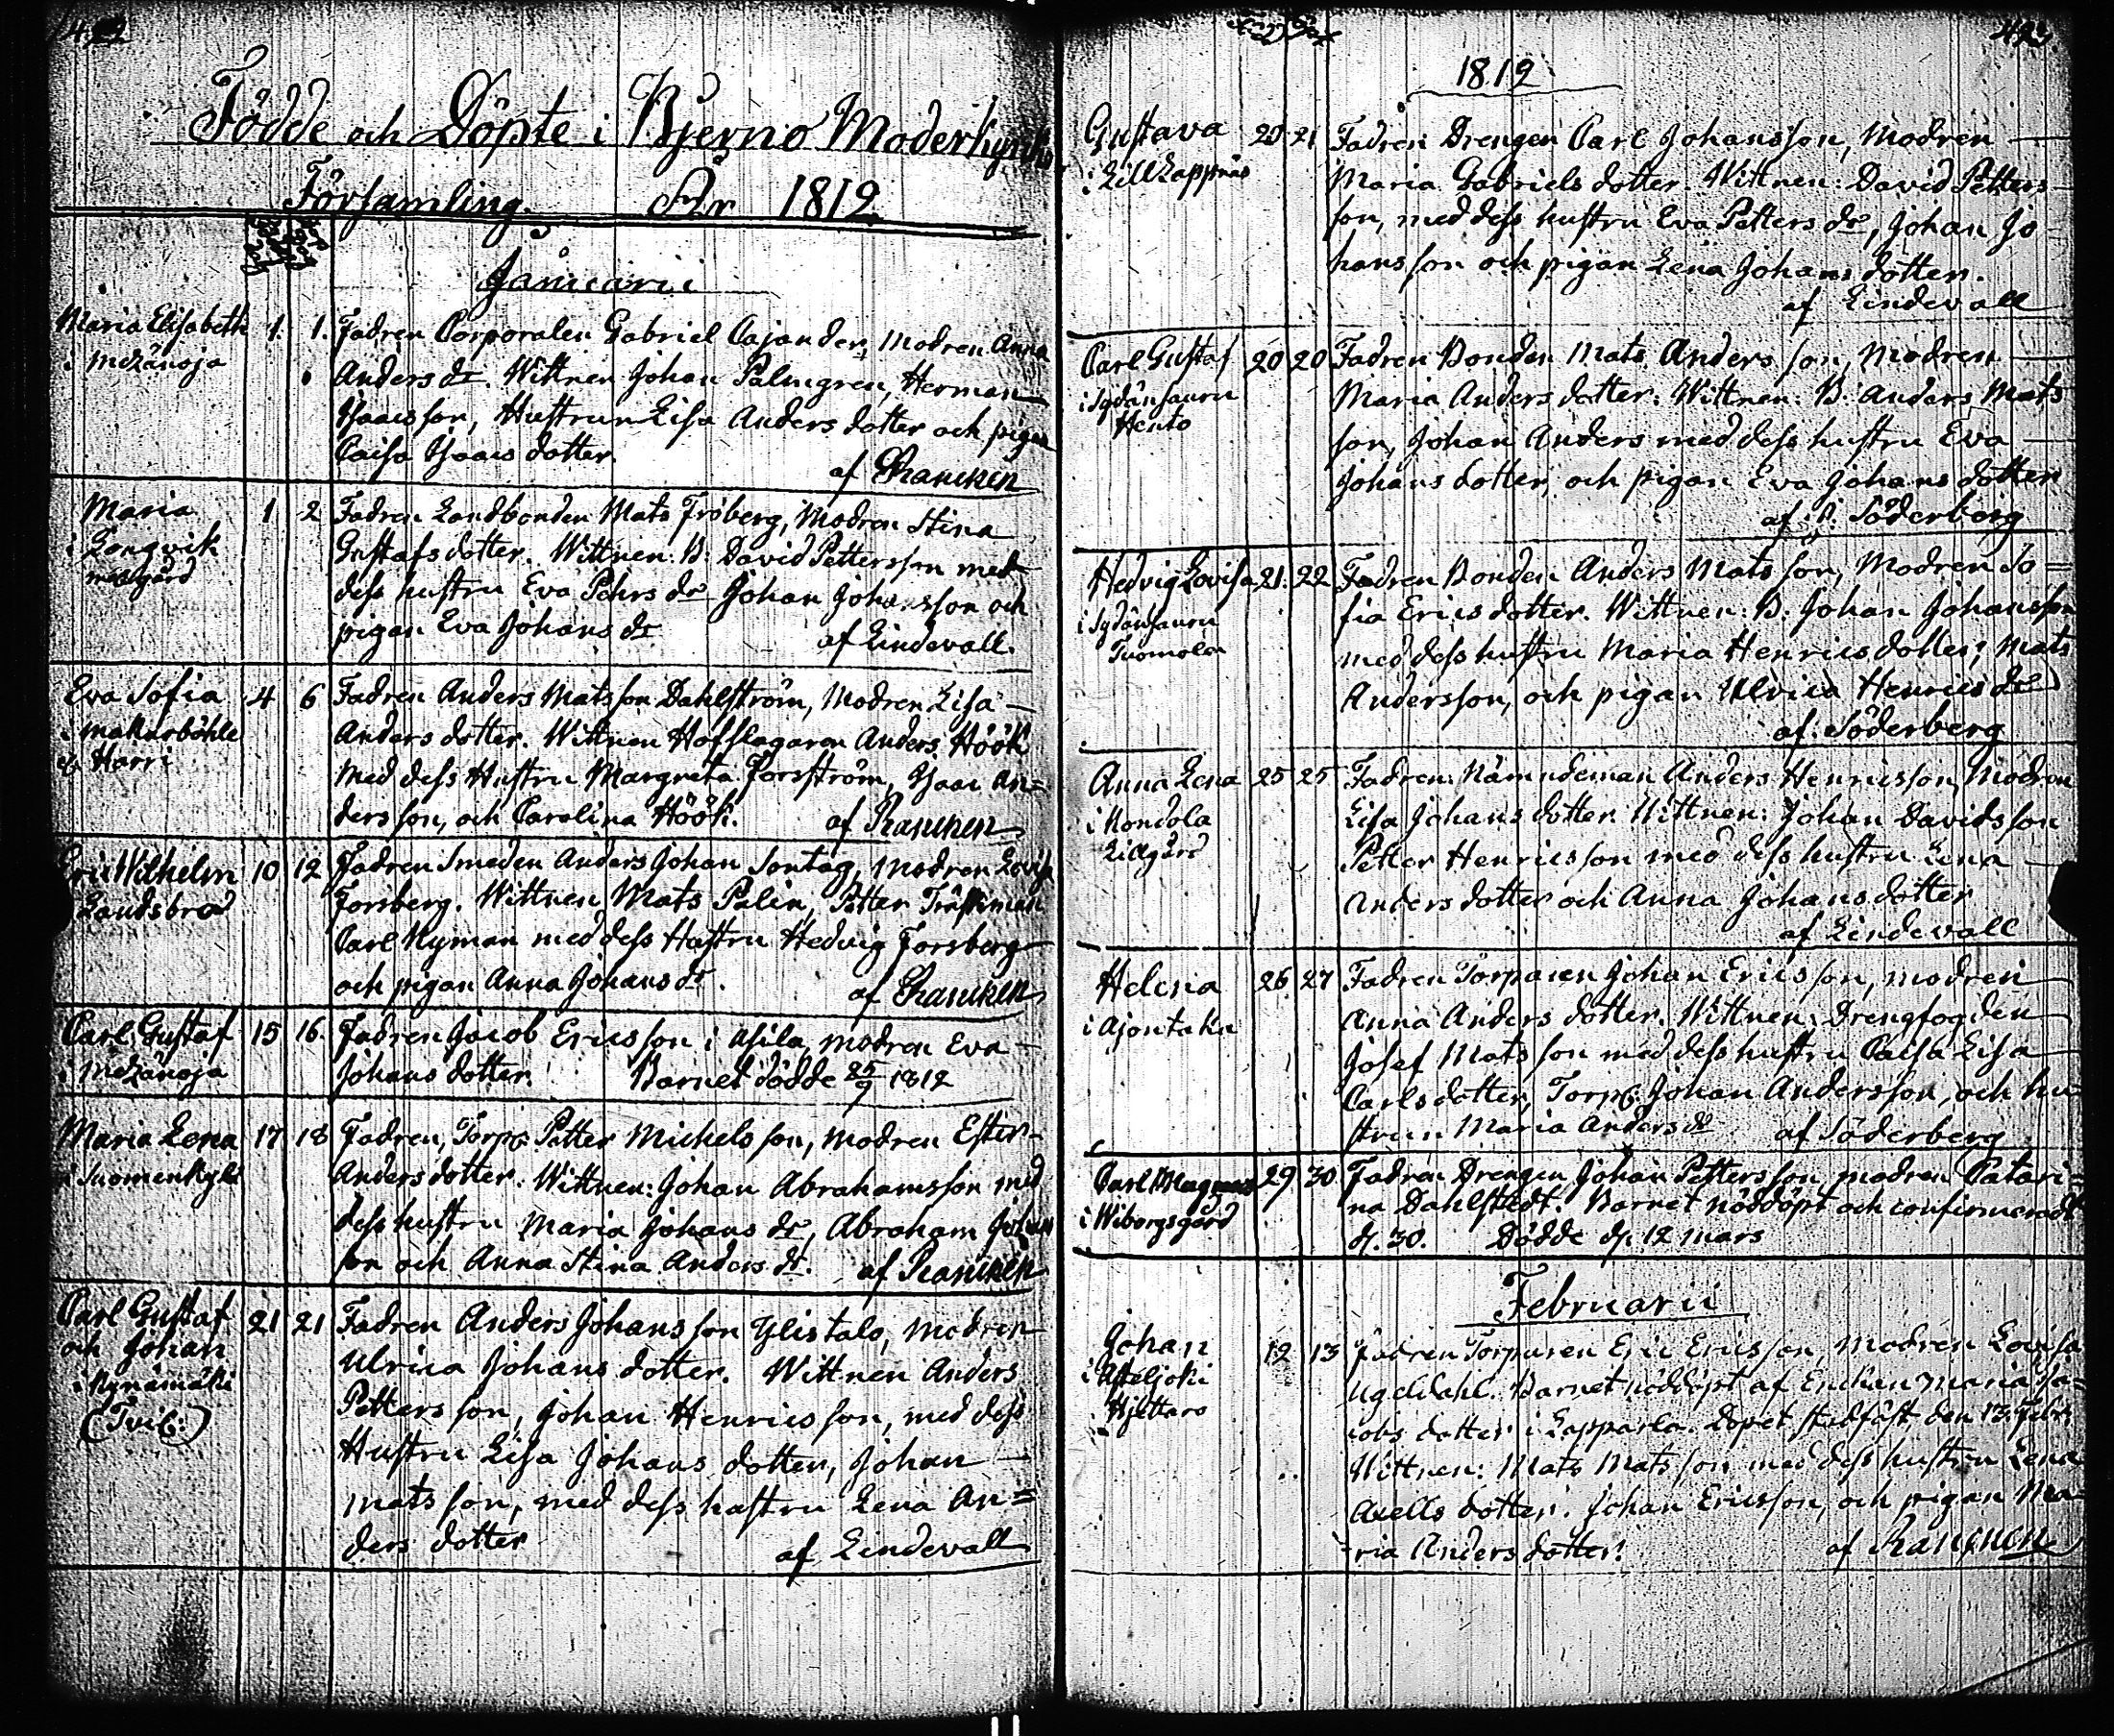 422
Födde och Döpte i Bjerno Moderkyrko
Församling. År 1812
Januarii
Maria Elisabeth 1. 1. Fadren Corporalen Gabriel Cajander, Modren Anna
i Metsänoja Anders dr. Wittnen Johan Palmgren, Herman
Isaacsson, Hustrun Lisa Anders dotter och pigan
Caisa Isaacs dotter. af Rancken
Maria 1 2 Fadren Landbonden Mats Fröberg, Modren Stina
i Längvik Gustafs dotter. Wittnen: B: David Pettersson med
dess hustru Eva Pehrs dr Johan Johansson och
pigan Eva Johans dr af Lindevall.
Eva Sofia 4 6 Fadren Anders Matsson Dahlström, Modren Lisa
i Makarböhle Anders dotter. Wittnen Hofslagaren Anders Höök
Harri med dess Hustru Margreta Forsström, Isaac An=
dersson, och Carolina Höök. af Rancken
Eric Wilhelm 10 12 Fadren Smeden Anders Johan Sontag, Modren Lovisa
Landsbro Forsberg. Wittnen Mats Palin, Petter Träskman
Carl Nyman med dess Hustru Hedvig Forsberg
och pigan Anna Johans dr. af Rancken
Carl Gustaf 15 16. Fadren Jacob Ericsson i Asila, modren Eva
i Metsänoja Johans dotter. Barnet dödde 25/9 1812
Maria Lena 17 18 Fadren, Torp. Petter Michelsson, modren Ester
i Suomenkylä Anders dotter. Wittnen: Johan Abrahamsson med
dess hustru Maria Johans dr, Abraham Johans
son och Anna Stina Anders dr. af Rancken
Carl Gustaf 21 21 Fadren Anders Johansson Ylistalo, modren
och Johan Ulrica Johans dotter. Wittnen Anders
i Kynämäki Pettersson, Johan Henricsson, med dess
(Tvil:) Hustru Lisa Johans dotter, Johan
Matsson, med dess hustru Lena An=
ders dotter af Lindevall
423
1812
Gustava 20 21 Fadren Drengen Carl Johansson, Modren
i LillLappnäs Maria Gabriels dotter. Wittnen: David Petters
son, med dess hustru Eva Petters dr, Johan Jo
hansson och pigan Lena Johans dotter.
af Lindevall
Carl Gustaf 20 20 Fadren Bonden Mats Andersson, Modren
i Sydänsauru Maria Anders dotter. Wittnen: B: Anders Mats
Hento son, Johan Anders med dess hustru Eva
Johans dotter, och pigan Eva Johans dotter
af Söderberg
Hedvig Lovisa 21. 22 Fadren Bonden Anders Matsson, Modren So=
i Sydänsauru fia Erics dotter. Wittnen: B: Johan Johansson
Tuomola med dess hustru Maria Henrics dotter, Mats
Andersson, och pigan Ulrica Henrics dr
af Söderberg
Anna Lena 25 25 Fadren Nämndeman Anders Henricsson, Modren
i Kondola Lisa Johans dotter Wittnen: Johan Davidsson
Lillgård Petter Henricsson med dess hustru Lena
Anders dotter och Anna Johans dotter
af Lindevall
Helena 26 27 Fadren Torparen Johan Ericsson, modren
i Ajontaka Anna Anders dotter. Wittnen: Drengfogden
Josef Matsson med dess hustru Caisa Lisa
Carls dotter, Torp. Johan Andersson, och hu=
strun Maria Anders dr af Söderberg
Carl Magnus 29 30 Fadren Drengen Johan Pettersson modren Catari=
i Wiborgsgård na Dahlstedt. Barnet nöddöpt och confirmeradt
d. 30. Dödde d. 12 mars
Februarii
Johan 12 13 Fadren Torparen Eric Ericsson, Modren Lovisa
Hjettaro Barnet nöddöpt af Enckan Maria Ja=
cobs dotter i Lapparla. Dopet stadfäst den 13. Febr.
Wittnen: Mats Matsson med dess hustru Lena
Axells dotter. Johan Ericsson, och pigan Ma
ria Anders dotter. af Rancken